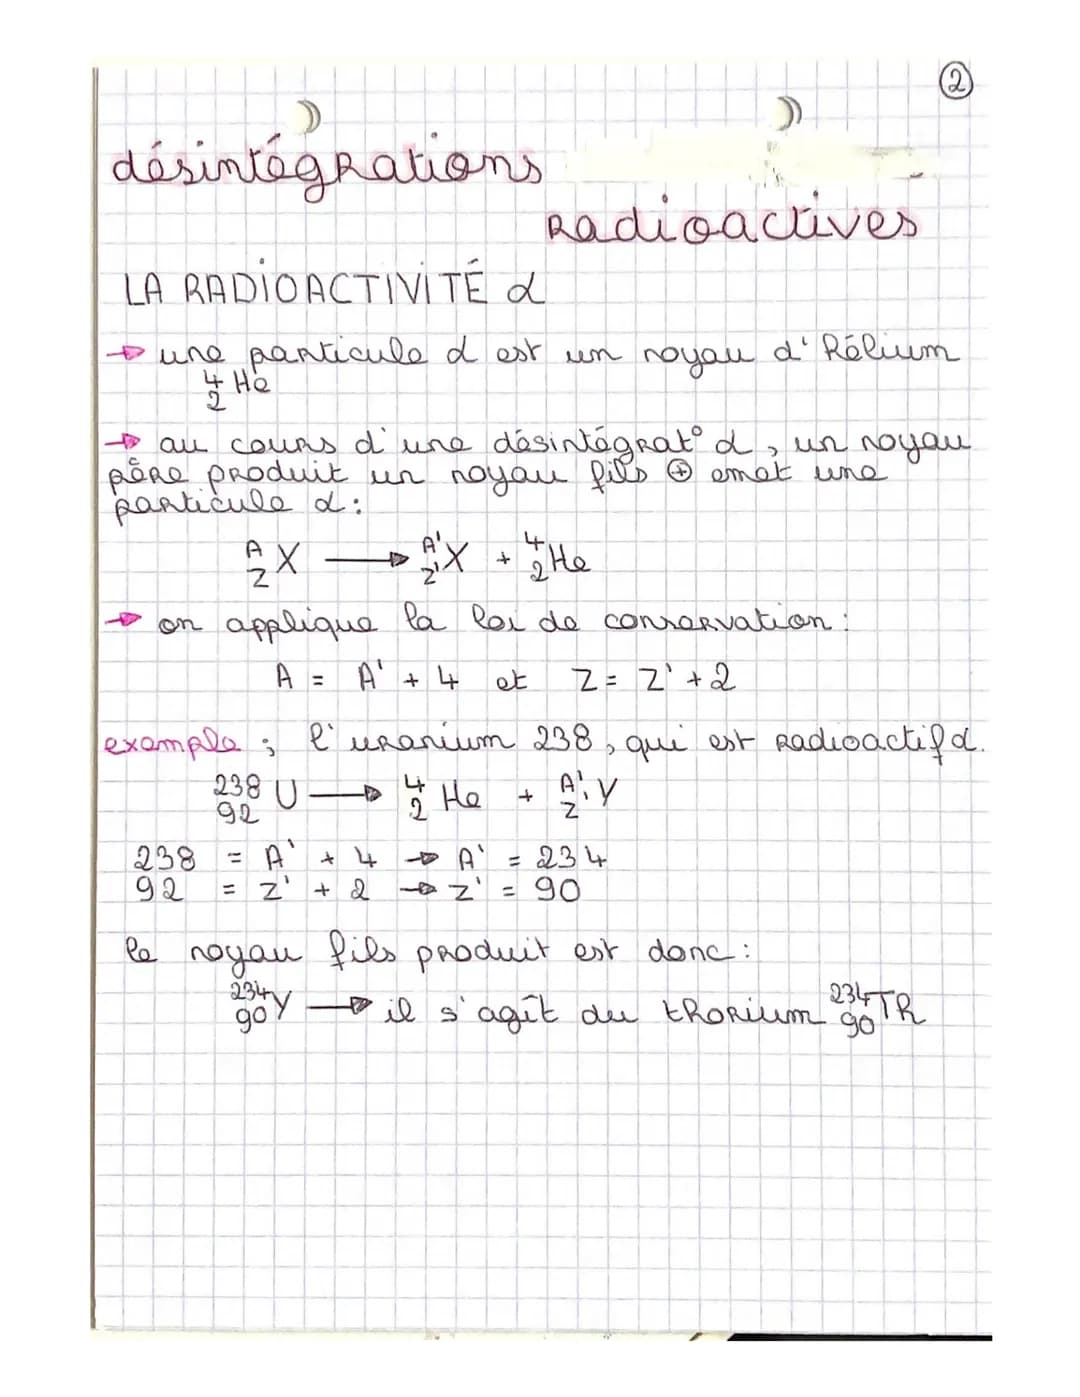 ②
désintégrations
radioactives
LA RADIOACTIVITÉ α
→ une particule α est un noyau d'hélium
⁴₂He
→ au cours d'une désintégrat° α, un noyau
père produit un noyau fils ⊕ emet une
particule α :
ᴬ_Z X → ᴬ'_Z' X + ⁴₂He
→ on applique la loi de conservation :
A = A' + 4 et Z = Z' + 2
exemple ; l'uranium 238, qui est radioactif α.
²³⁸₉₂U → ⁴₂He + ᴬ'_Z' Y
238 = A' + 4 → A' = 234
92 = Z' + 2 → Z' = 90
le noyau fils produit est donc :
²³⁴₉₀Y → il s'agît du thorium ²³⁴₉₀Th